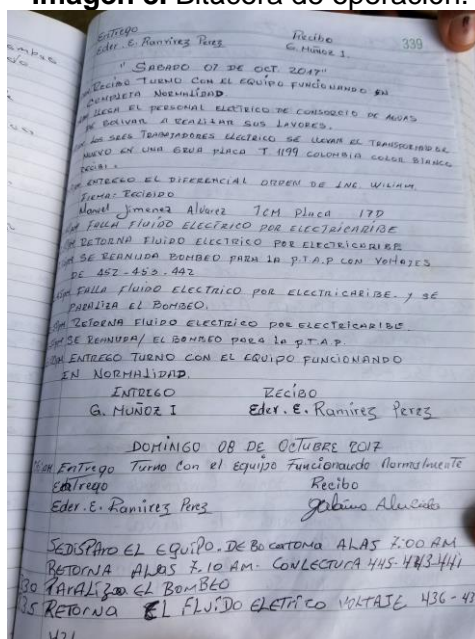 Imagen 8. Bitácora de operación.
339
Entrego Recibo
Eder. E. Ramirez Perez G. Muñoz I.
"SABADO 07 DE OCT. 2017"
Recibo TURNO CON EL EQUIPO FUNCIONANDO EN
COMPLETA NORMALIDAD.
LLEGA EL PERSONAL ELECTRICO DE CONSORCIO DE AGUAS
DE BOLIVAR A REALIZAR SUS LAVORES.
LOS SRES TRABAJADORES ELECTRICO SE LLEVAN EL TRANSFORMADOR
NUEVO EN UNA GRUA PLACA T 1199 COLOMBIA COLOR BLANCO
RECIBI.
ENTREGO EL DIFERENCIAL ORDEN DE ING. WILIAM.
FIRMA: RECIBIDO
Manuel Jimenez Alvarez 7CM Placa 17D
FALLA FLUIDO ELECTRICO POR ELECTRICARIBE
RETORNA FLUIDO ELECTRICO POR ELECTRICARIBE
SE REANUDA BOMBEO PARA LA P.T.A.P CON VOHAJES
DE 452-453-442
FALLA FLUIDO ELECTRICO POR ELECTRICHARIBE. Y SE
PARALIZA EL BOMBEO.
RETORNA FLUIDO ELECTRICO POR ELECTRICARIBE.
SE REANUDA/ EL BOMBEO PARA LA P.T.A.P.
ENTREGO TURNO CON EL EQUIPO FUNCIONANDO
EN NORMALIDAD.
ENTREGO RECIBO
G. MUÑOZ I Eder. E. Ramirez Perez
DOMINGO 08 DE OCTUBRE 2017
Entrego Turno Con el equipo Funcionando Normalmente
Entrego Recibo
Eder. E. Ramirez Perez
SEDISPARO EL EQUIPO. DE BOCATOMA ALAS 7:00 AM
RETORNA ALAS 7.10 AM- CONLECTURA 445-443-441
30 PARALIZO EL BOMBEO
35 RETORNA EL FLUIDO ELETRICO VOLTAJE 436-43
431